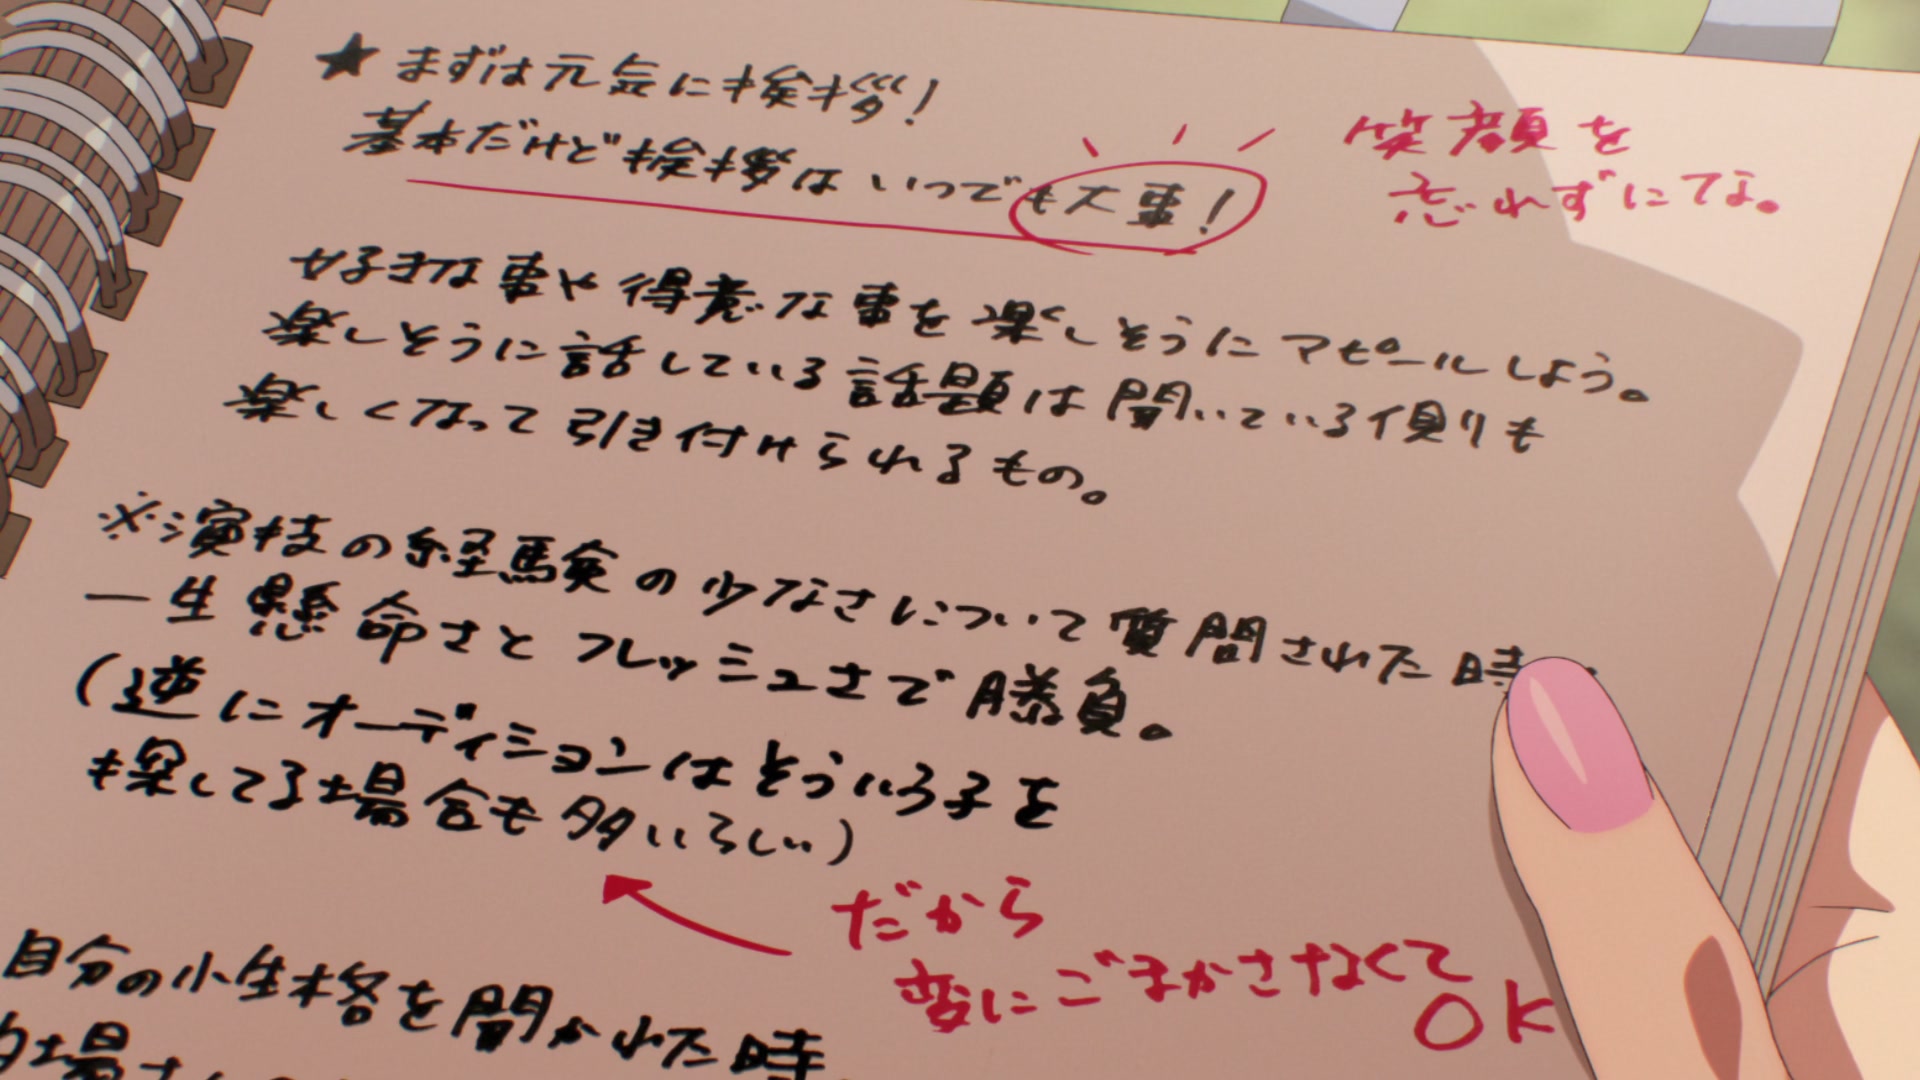 ★まずは元気に挨拶!
基本だけど挨拶はいつでも大事!
笑顔を
忘れずにてな。
好きな事や得意な事を楽しそうにアピールしよう。
楽しそうに話している話題は聞いている側りも
楽しくなって引き付けられるもの。
※演技の経験の少なさについて質問された時
一生懸命さとフレッシュさで勝負。
(逆にオーディションはそういう子を
も探してる場合も多いらしい)
だから
変にごまかさなくて
OK
自分の性格を聞かれた時